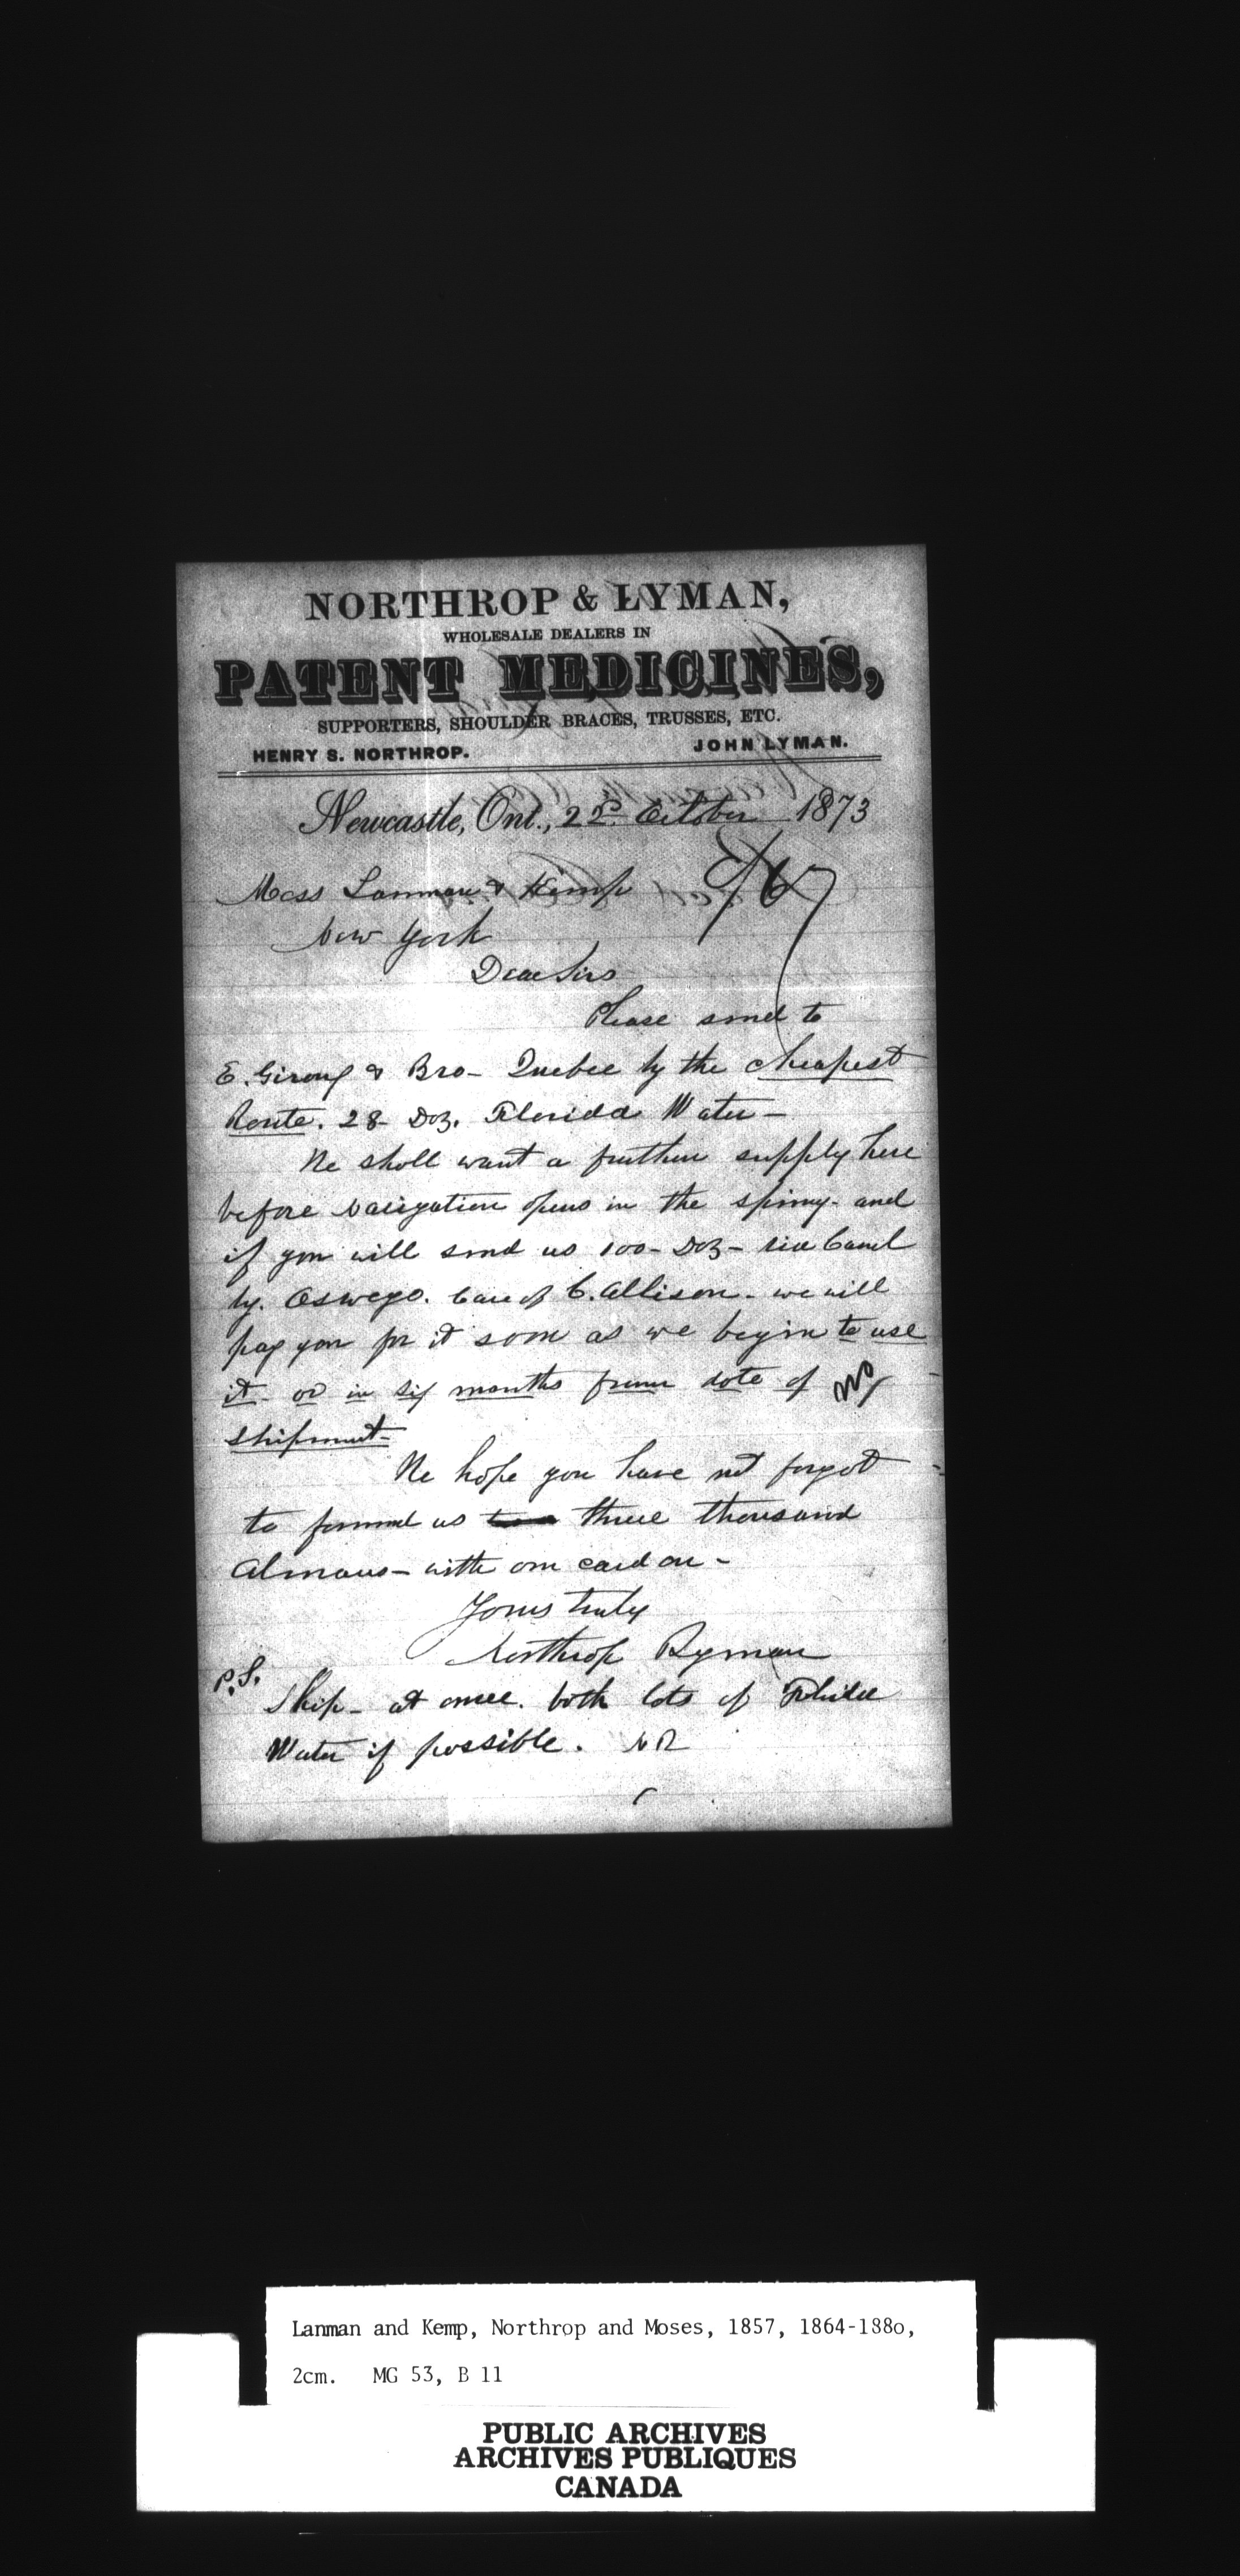 NORTHROP & LYMAN,
WHOLESALE DEALERS IN
PATENT MEDICINES,
SUPPORTERS, SHOULDER BRACES, TRUSSES, ETC.
HENRY S. NORTHROP. JOHN LYMAN.
Newcastle, Ont., 22nd October 1873
Mess Lanman & Kemp
New York
Dear Sirs
Please send to
E. Giroux & Bro - Quebec by the cheapest
Route. 28 - Doz. Florida Water -
We shall want a further supply here
before navigation opens in the spring - and
if you will send us 100 - Doz - via Canal
by. Oswego. Care of C. Allison - we will
pay you for it soon as we begin to use
it - or in six months from date of
shipment -
We hope you have not forgot
to forward us three thousand
Almanas - with our card on -
Yours truly
Northrop Lyman
P.S.
Ship - at once. both lots of Florida
Water if possible. N L
Lanman and Kemp, Northrop and Moses, 1857, 1864-188o,
2cm. MG 53, B 11
PUBLIC ARCHIVES
ARCHIVES PUBLIQUES
CANADA